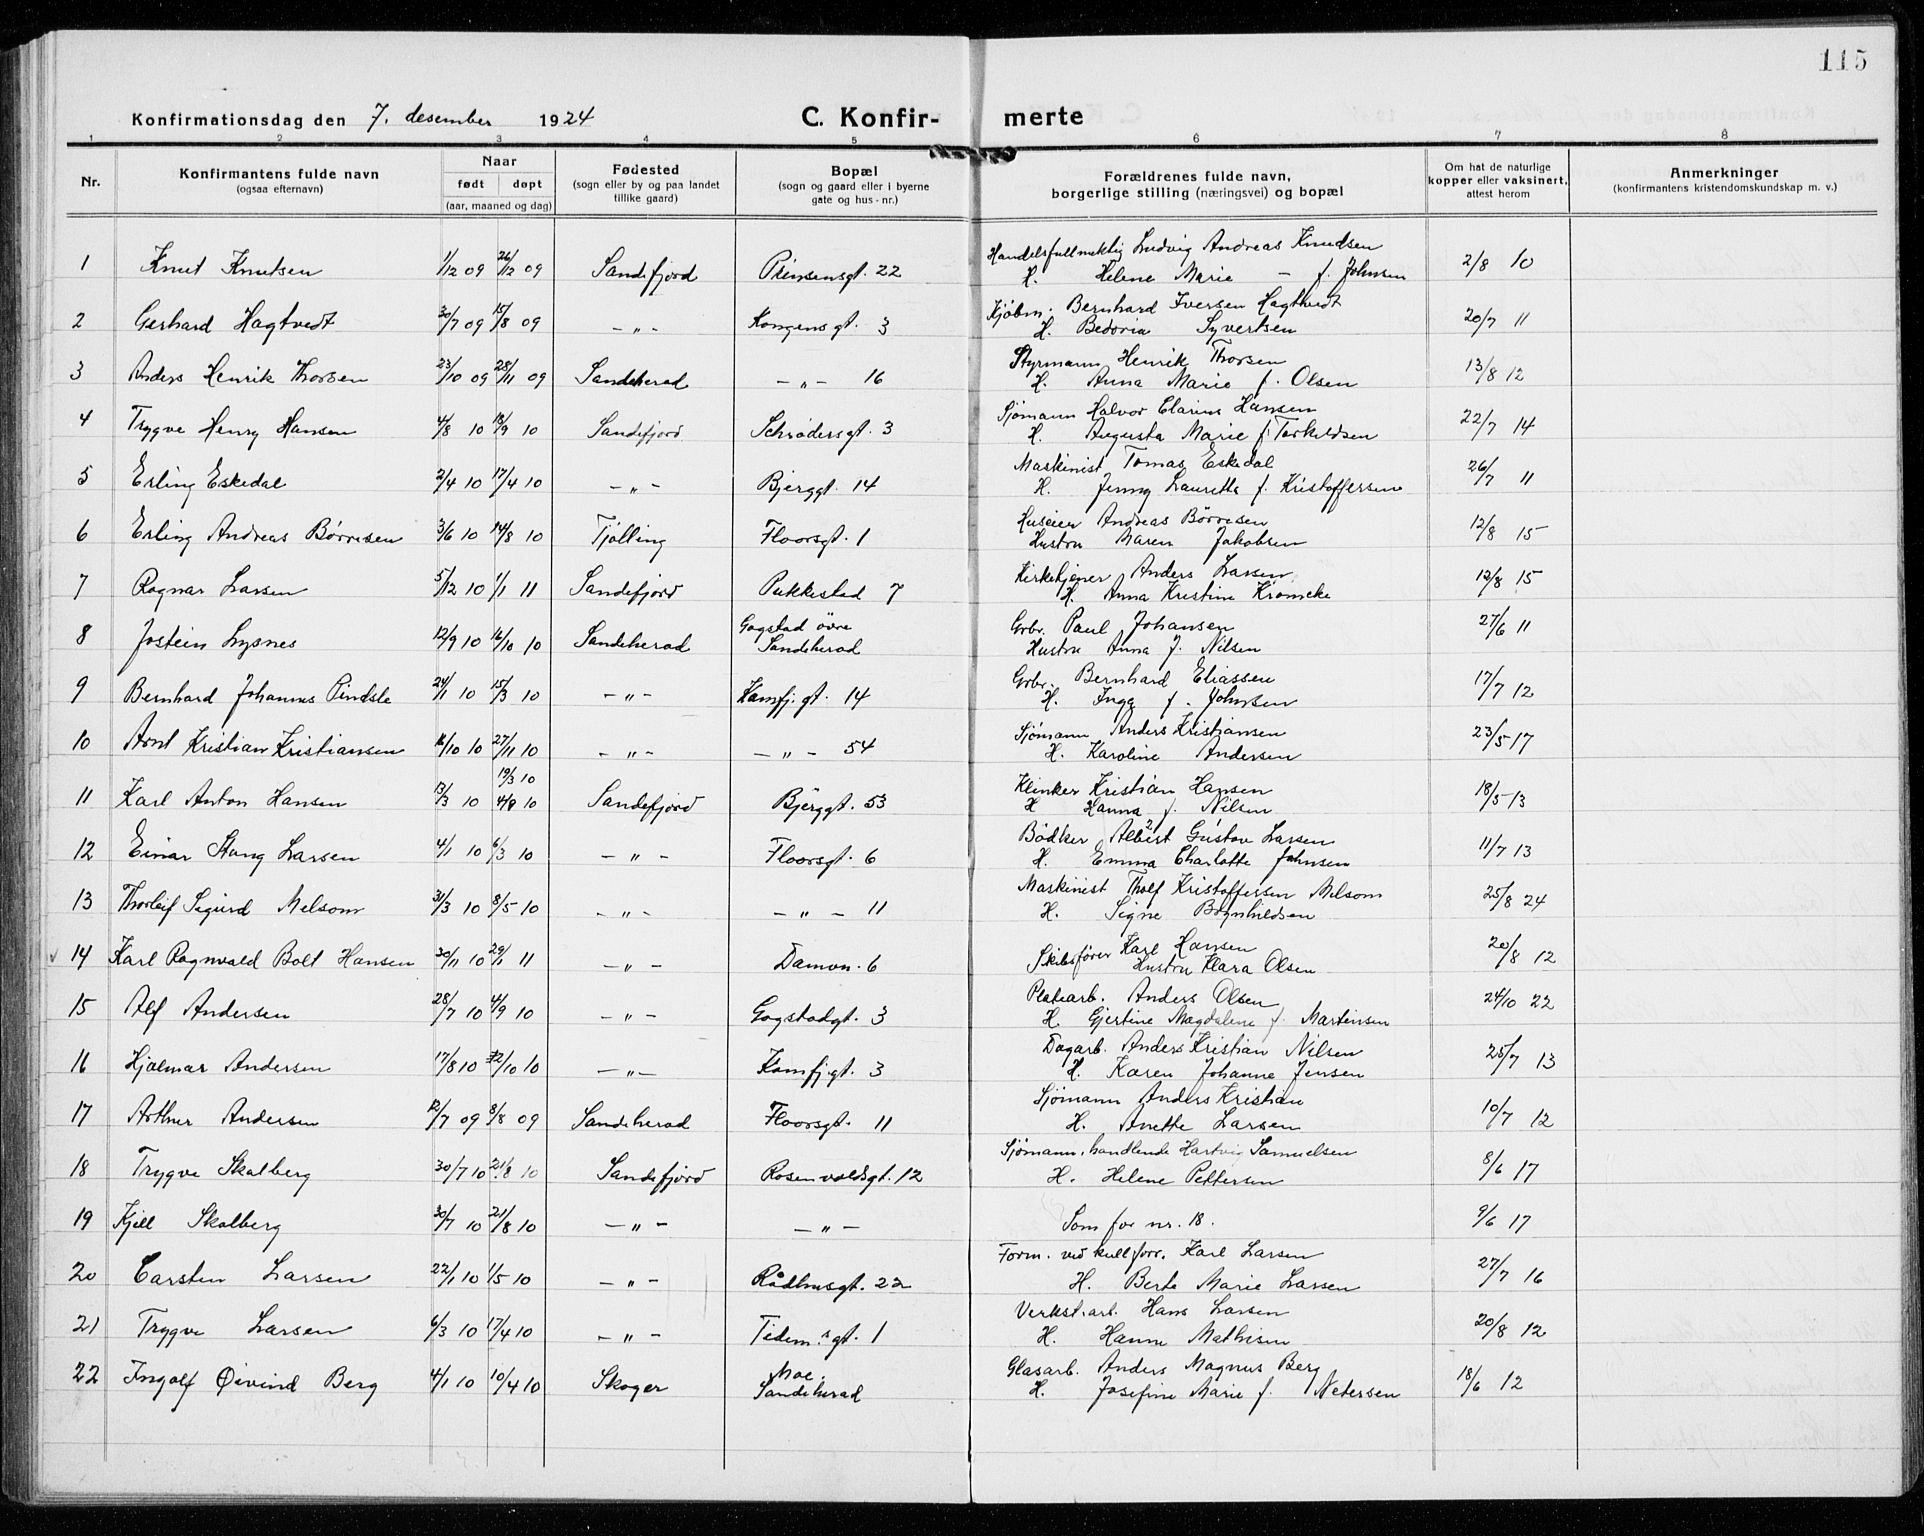 115
Konfirmationsdag den 7. desember 1924 C. Konfir- merte
1 2 3 4 5 6 7 8
Nr. Konfirmantens fulde navn (ogsaa efternavn) Naar født døpt (aar, maaned og dag) Fødested (sogn eller by og paa landet tillike gaard) Bopæl (sogn og gaard eller i byerne gate og hus-nr.) Forældrenes fulde navn, borgerlige stilling (næringsvei) og bopæl Om hat de naturlige kopper eller vaksinert, attest herom Anmerkninger (konfirmantens kristendomskundskap m. v.)
Handelsfullmektig Ludvig Andreas Knudsen
1 Knut Knutsen 1/12 09 26/12 09 Sandefjord Prinsensgt. 22 H. Helene Marie — f. Johnsen 2/8 10
Kjøbm. Bernhard Iversen Hagtvedt
2 Gerhard Hagtvedt 30/7 09 15/8 09 — " — Kongensgt. 3 H. Bedoria Syvertsen 20/7 11
Styrmann Henrik Thorsen
3 Anders Henrik Thorsen 23/10 09 28/11 09 Sandeherad — " — 16 H. Anna Marie f. Olsen 13/8 12
Sjømann Halvor Clarius Hansen
4 Trygve Henry Hansen 4/8 10 18/9 10 Sandefjord Schrødersgt. 3 H. Augusta Marie f. Torkildsen 22/7 14
Maskinist Tomas Eskedal
5 Erling Eskedal 2/4 10 17/4 10 — " — Bjerggt. 14 H. Jenny Lauretta f. Kristoffersen 26/7 11
Huseier Andreas Børresen
6 Erling Andreas Børresen 3/6 10 14/8 10 Tjølling Floorsgt. 1 Hustru Maren Jakobsen 12/8 15
Kirketjener Anders Larsen
7 Ragnar Larsen 5/12 10 1/1 11 Sandefjord Pukkestad 7 H. Anna Kristine Kromcke 12/8 15
Gogstad övre Grbr. Paul Johansen
8 Jostein Lysnes 12/9 10 16/10 10 Sandeherad Sandeherad Hustru Anna f. Nilsen 27/6 11
Grbr. Bernhard Eliassen
9 Bernhard Johannes Pindsle 24/1 10 15/3 10 — " — Kamfj.gt. 14 H. Inga f. Johnsen 17/7 12
Sjømann Anders Kristiansen
10 Arnt Kristian Kristiansen 16/10 10 27/11 10 — " — — " — 54 H. Karoline Andersen 23/5 17
19/3 10 Klinker Kristian Hansen
11 Karl Anton Hansen 13/3 10 4/9 10 Sandefjord Bjerggt. 53 H Hanna f. Nilsen 18/5 13
Bødker Albert Gustav Larsen
12 Einar Stang Larsen 4/1 10 6/3 10 — " — Floorsgt. 6 H. Emma Charlotte Johnsen 11/7 13
Maskinist Tholf Kristoffersen Melsom
13 Thorleif Sigurd Melsom 31/3 10 8/5 10 — " — — " — 11 H. Signe Bognhildsen 25/8 24
Skibsfører Karl Hansen
14 Karl Ragnvald Bolt Hansen 30/11 10 29/1 11 — " — Damvn. 6 Hustru Klara Olsen 20/8 12
Platearb. Anders Olsen
15 Alf Andersen 28/7 10 4/9 10 — " — Gogstadgt. 3 H. Gjertine Magdalene f. Martinsen 24/10 22
Dagarb. Anders Kristian Nilsen
16 Hjalmar Andersen 17/8 10 2/10 10 — " — Kamfj.gt. 3 H. Karen Johanne Jensen 25/7 13
Sjømann Anders Kristian
17 Arthur Andersen 12/7 09 8/8 09 Sandeherad Floorsgt. 11 H. Anette Larsen 10/7 12
Sjømann, handlende Hartvig Samuelsen
18 Trygve Skalberg 30/7 10 21/8 10 Sandefjord Rosenvoldsgt. 12 H. Helene Pettersen 8/6 17
19 Kjell Skalberg 30/7 10 21/8 10 — " — — " — Som for nr. 18. 9/6 17
Form. ved kullforr. Karl Larsen
20 Carsten Larsen 22/1 10 1/5 10 — " — Rådhusgt. 22 H. Berta Marie Larsen 27/7 16
Verkst.arb. Hans Larsen
21 Trygve Larsen 6/3 10 17/4 10 — " — Tidem.sgt. 1 H. Hanne Mathisen 20/8 12
Moe, Glasarb. Anders Magnus Berg
22 Ingolf Øivind Berg 4/1 10 10/4 10 Skoger Sandeherad H. Josefine Marie f. Petersen 18/6 12